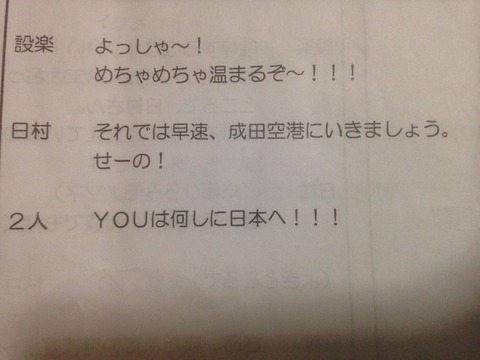 設楽　よっしゃ～！
めちゃめちゃ温まるぞ～！！！
日村　それでは早速、成田空港にいきましょう。
せーの！
２人　ＹＯＵは何しに日本へ！！！